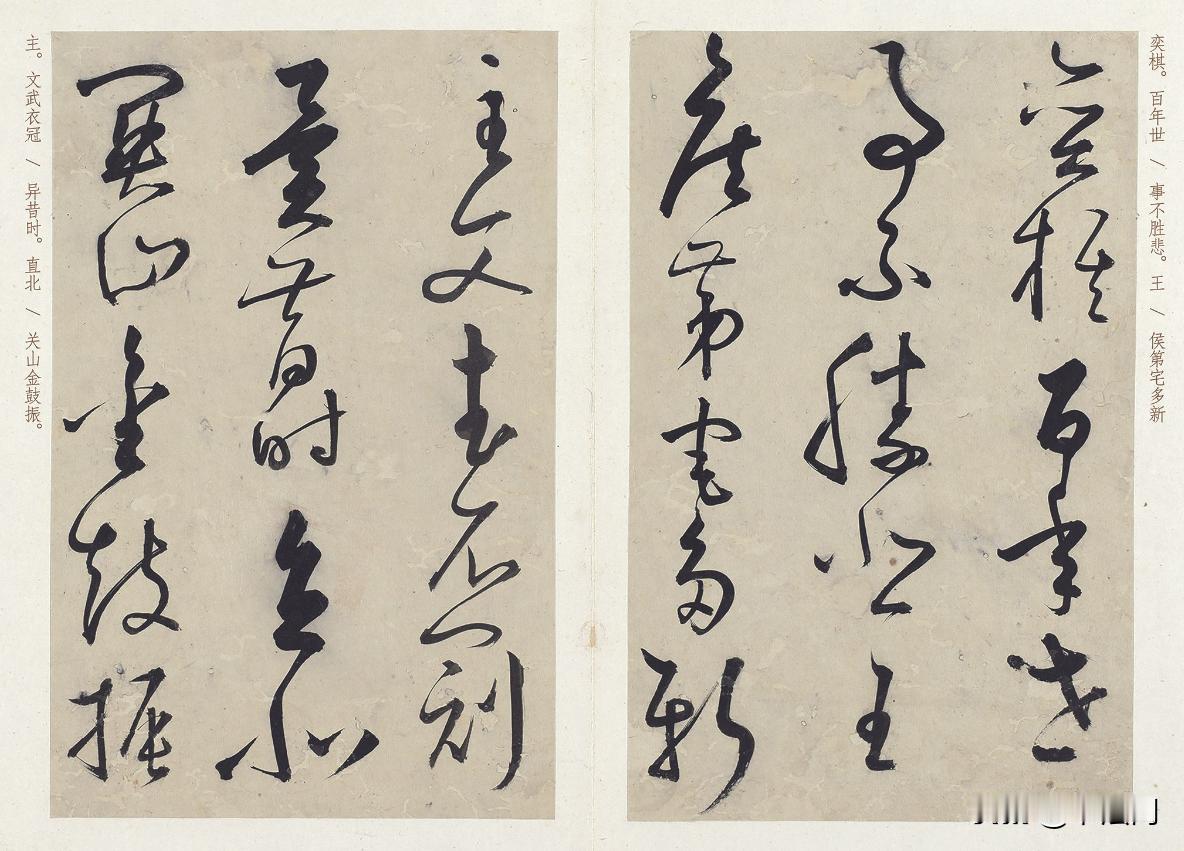 奕棋。百年世 / 事不胜悲。王 / 侯第宅多新
奕棋百年世
事不勝悲王
侯第宅多新
主文武衣冠
異昔時直北
關山金鼓振
主。文武衣冠 / 异昔时。直北 / 关山金鼓振。